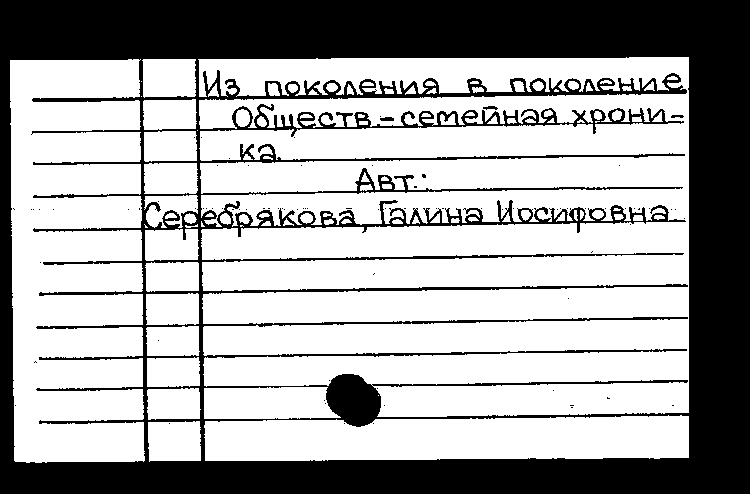 Из поколения в поколение
Обществ.-семейная хрони-
ка.
Авт.:
Серебрякова, Галина Иосифовна